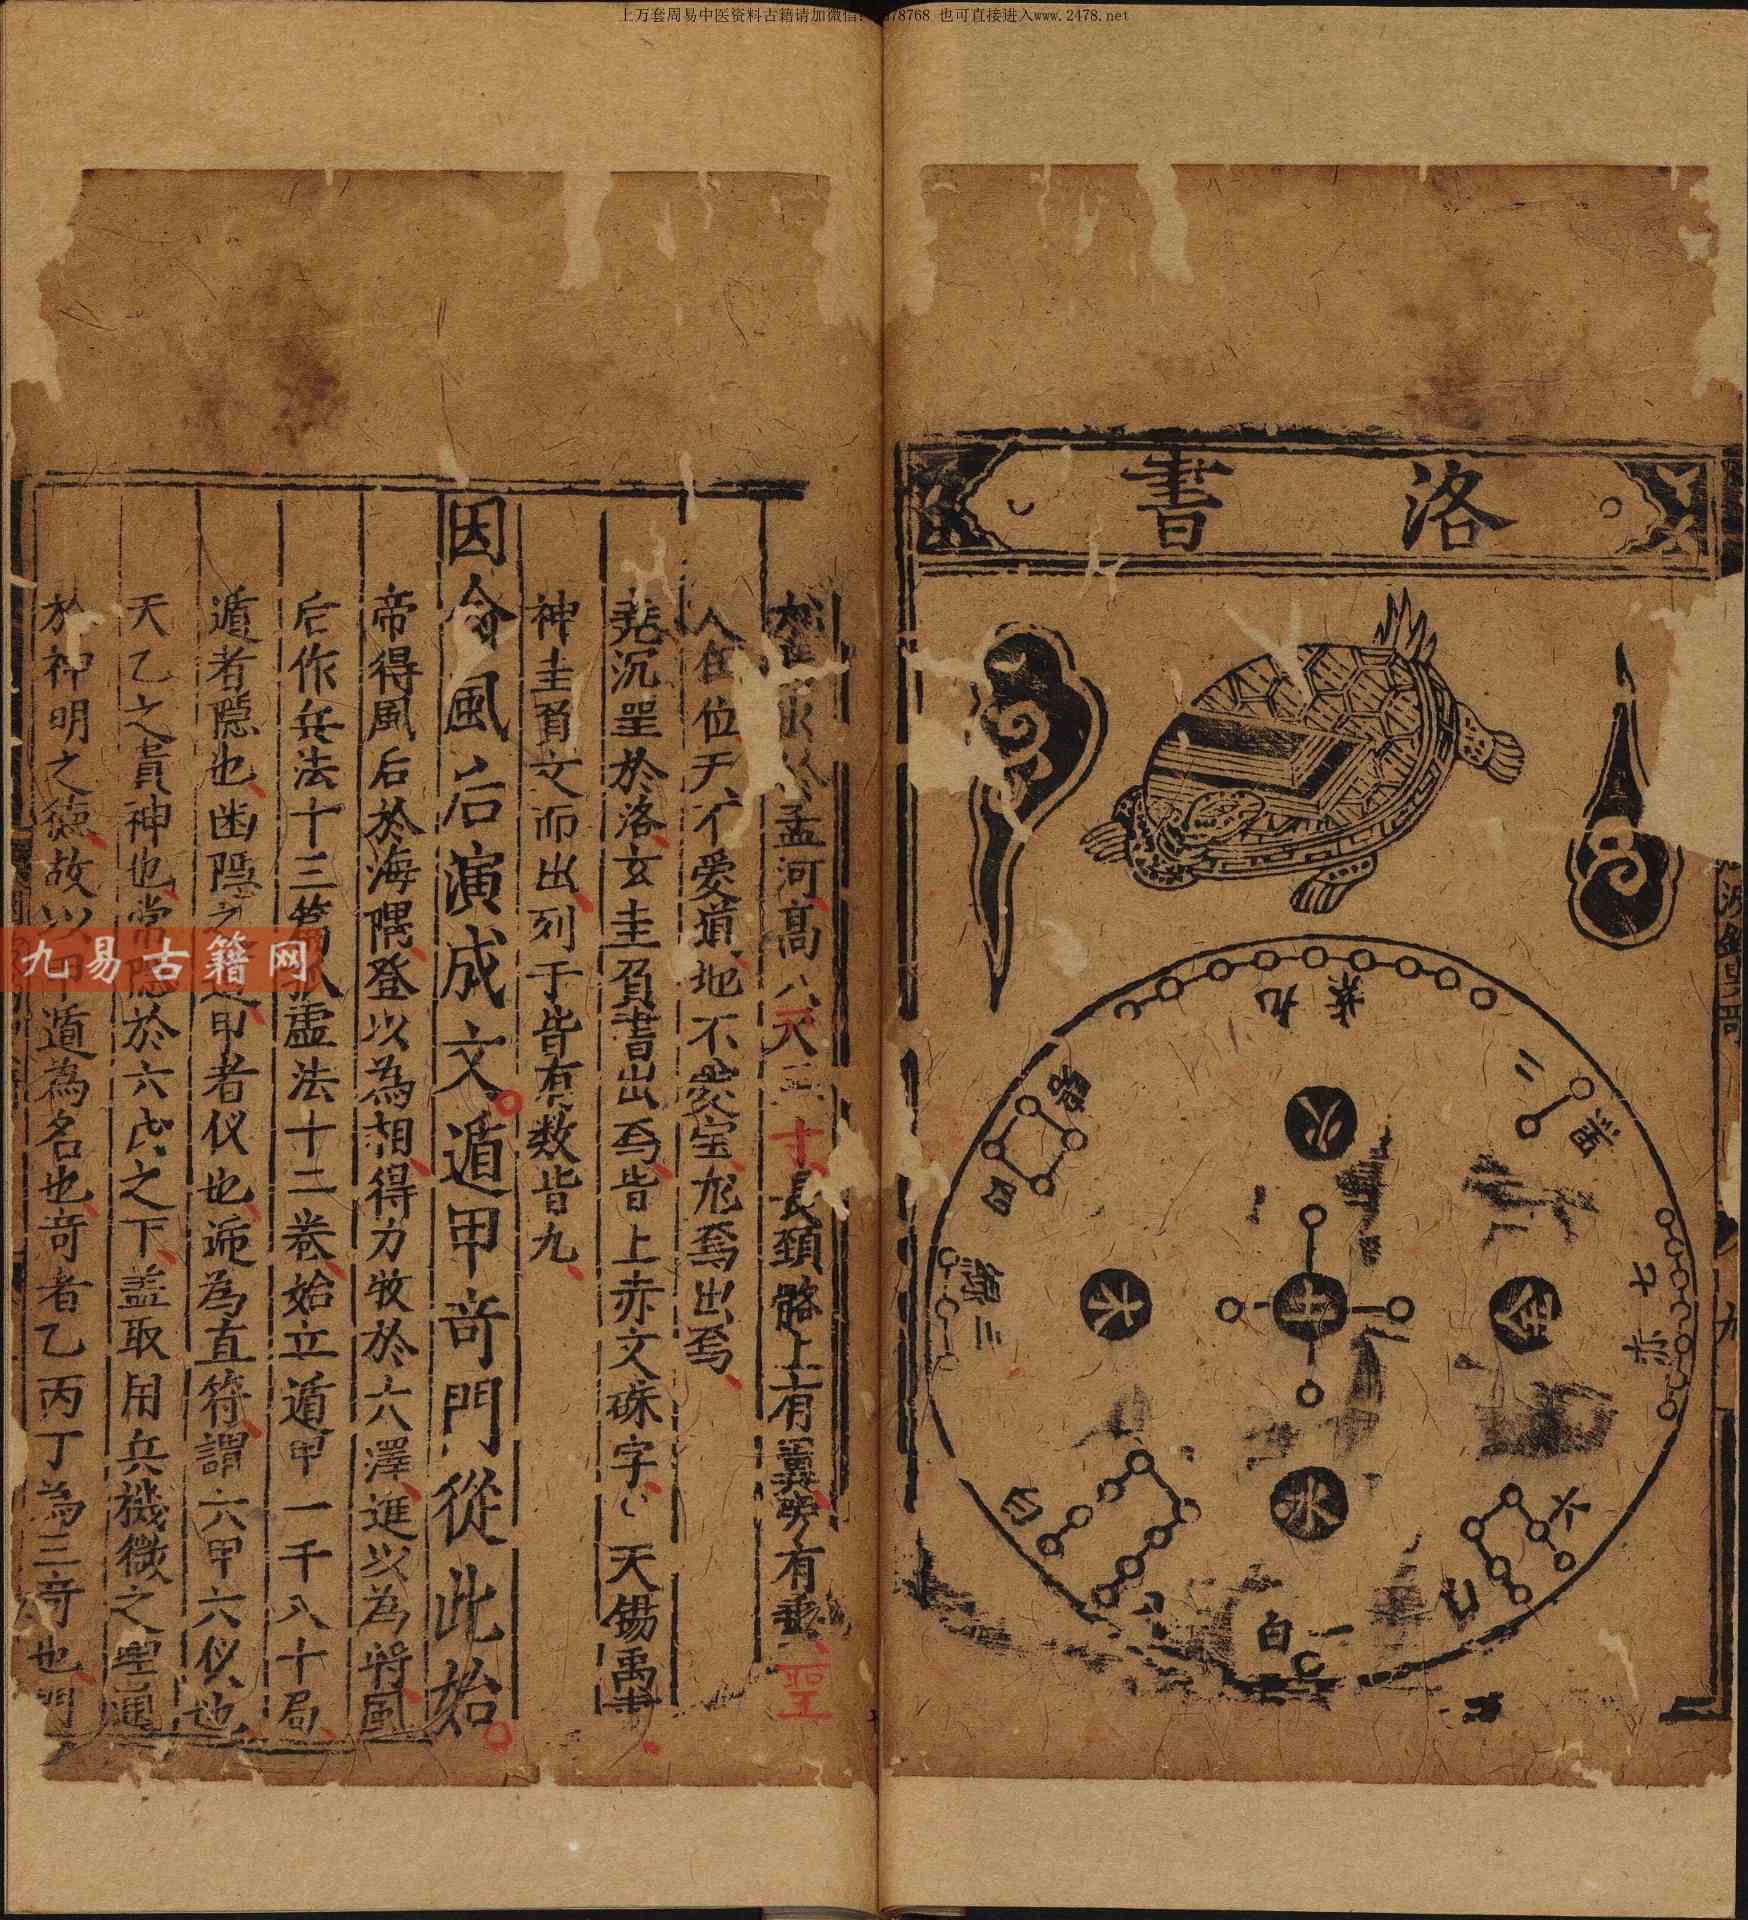 上万套周易中医资料古籍请加微信
78768 也可直接进入www.2478.net
洛書
九紫
二
四
七赤
三
六
白
一白
八
火
木
金
水
孟河高八尺三寸長頚骼上有翼旁有垂聖
人在位天不愛道地不愛宝尨馬出焉
堯沉罜於洛玄圭負書出焉背上赤文硃字天錫禹書
神圭負文而出列于背有数皆九
因命風后演成文遁甲奇門從此始
帝得風后於海隅登以為相得力牧於六澤進以為將風
后作兵法十三篇孤虛法十二卷始立遁甲一千八十局
遁者隠也幽隠之道甲者仪也 為直符謂六甲六仪也
天乙之貴神也常隠於六戊之下盖取用兵機微之理通
於神明之徳故以甲遁為名也竒者乙丙丁為三竒也門
九易古籍网
九